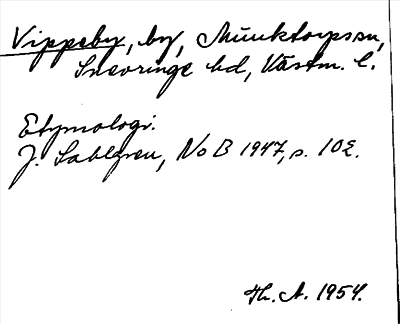 Vippeby, by, Munktorpssn,
Snevringe hd, Västm. l.
Etymologi.
J. Sahlgren, NoB 1947, s. 102.
Th. A. 1954.